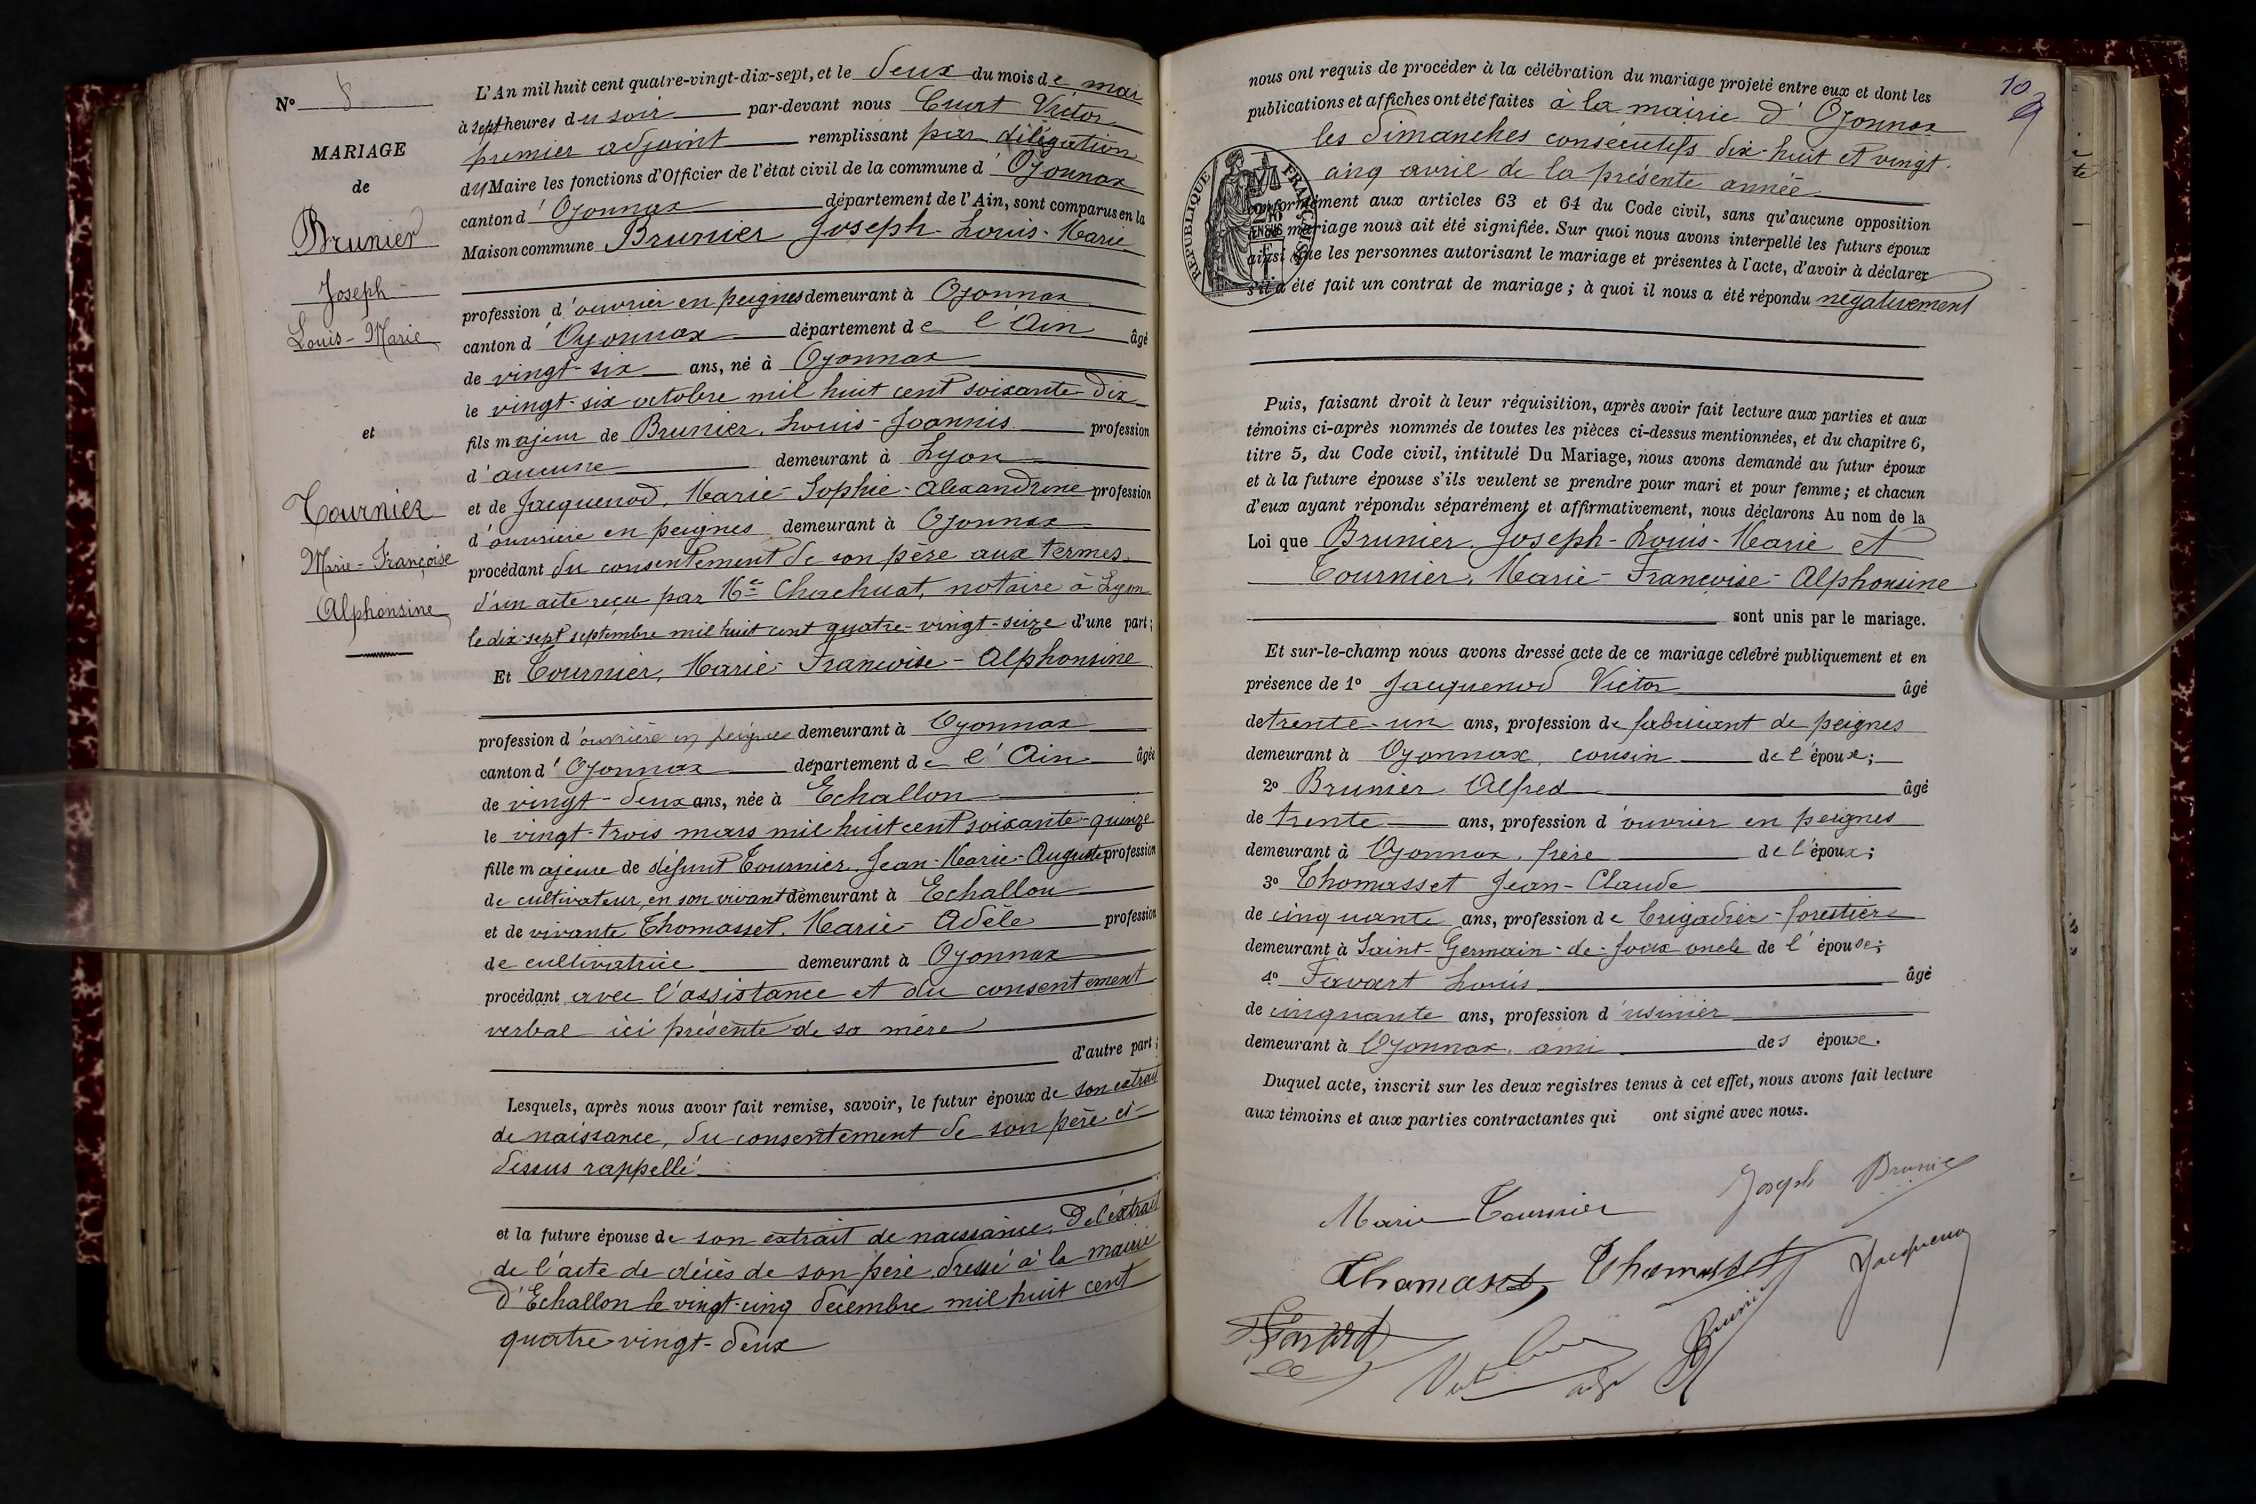 Nº 8
MARIAGE
de
Brunier
Joseph
Louis-Marie
et
Tournier
Marie-Françoise
Alphonsine
L'An mil huit cent quatre-vingt-dix-sept, et le deux du mois de mai
à sept heures du soir par-devant nous Cuat Victor
premier adjoint remplissant par délégation
du Maire les fonctions d'Officier de l'état civil de la commune d'Oyonnax
canton d'Oyonnax département de l'Ain, sont comparus en la
Maison commune Brunier Joseph-Louis-Marie
profession d'ouvrier en peignes demeurant à Oyonnax
canton d'Oyonnax département de l'Ain âgé
de vingt-six ans, né à Oyonnax
le vingt-six octobre mil huit cent soixante-dix
fils majeur de Brunier, Louis-Joannis profession
d'aucune demeurant à Lyon
et de Jacquenod, Marie-Sophie-Alexandrine profession
d'ouvrière en peignes demeurant à Oyonnax
procédant du consentement de son père aux termes
d'un acte reçu par Me Chachuat, notaire à Lyon
le dix-sept septembre mil huit cent quatre-vingt-seize d'une part;
Et Tournier, Marie-Françoise-Alphonsine
profession d'ouvrière en peignes demeurant à Oyonnax
canton d'Oyonnax département de l'Ain âgée
de vingt-deux ans, née à Echallon
le vingt-trois mars mil huit cent soixante-quinze
fille majeure de défunt Tournier, Jean-Marie-Auguste profession
de cultivateur, en son vivant demeurant à Echallon
et de vivante Thomasset, Marie-Adèle profession
de cultivatrice demeurant à Oyonnax
procédant avec l'assistance et du consentement
verbal ici présente de sa mère
d'autre part;
Lesquels, après nous avoir fait remise, savoir, le futur époux de son extrait
de naissance, du consentement de son père ci-
dessus rappellé
et la future épouse de son extrait de naissance, de l'extrait
de l'acte de décès de son père dressé à la mairie
d'Echallon le vingt-cinq décembre mil huit cent
quatre-vingt-deux
10
nous ont requis de procéder à la célébration du mariage projeté entre eux et dont les
publications et affiches ont été faites à la mairie d'Oyonnax
les dimanches consécutifs dix-huit et vingt-
cinq avril de la présente année
RÉPUBLIQUE FRANÇAISE
conformément aux articles 63 et 64 du Code civil, sans qu'aucune opposition
au mariage nous ait été signifiée. Sur quoi nous avons interpellé les futurs époux
ainsi que les personnes autorisant le mariage et présentes à l'acte, d'avoir à déclarer
s'il a été fait un contrat de mariage; à quoi il nous a été répondu négativement
Puis, faisant droit à leur réquisition, après avoir fait lecture aux parties et aux
témoins ci-après nommés de toutes les pièces ci-dessus mentionnées, et du chapitre 6,
titre 5, du Code civil, intitulé Du Mariage, nous avons demandé au futur époux
et à la future épouse s'ils veulent se prendre pour mari et pour femme; et chacun
d'eux ayant répondu séparément et affirmativement, nous déclarons Au nom de la
Loi que Brunier, Joseph-Louis-Marie et
Tournier, Marie-Françoise-Alphonsine
sont unis par le mariage.
Et sur-le-champ nous avons dressé acte de ce mariage célébré publiquement et en
présence de 1º Jacquenod Victor âgé
de trente-un ans, profession de fabricant de peignes
demeurant à Oyonnax, cousin de l'époux;
2º Brunier Alfred âgé
de trente ans, profession d'ouvrier en peignes
demeurant à Oyonnax, frère de l'époux;
3º Thomasset Jean-Claude
de cinquante ans, profession de brigadier-forestier
demeurant à Saint-Germain-de-Joux oncle de l'épouse;
4º Favart Louis âgé
de cinquante ans, profession d'usinier
demeurant à Oyonnax, ami des époux.
Duquel acte, inscrit sur les deux registres tenus à cet effet, nous avons fait lecture
aux témoins et aux parties contractantes qui ont signé avec nous.
Joseph Brunier
Marie Tournier
Thomasset Thomasset Jacquenod
Brunier